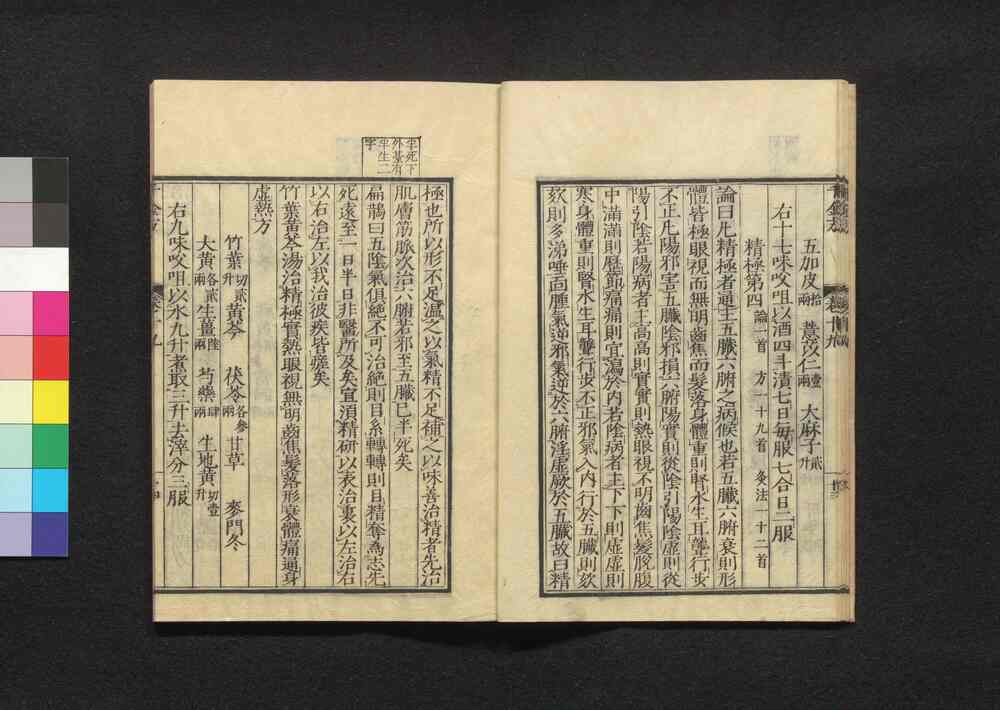 五加皮拾兩　薏苡仁壹兩　大麻子貳升
右十七味㕮咀以酒四斗漬七日每服七合日二服
精極第四論一首　方一十九首　灸法一十二首
論曰凡精極者通主五臟六腑之病候也若五臟六腑衰則形
體皆極眼視而無明齒焦而髮落身體重則腎水生耳聾行步
不正凡陽邪害五臟陰邪損六腑陽實則從陰引陽陰虛則從
陽引陰若陽病者主高高則實實則熱眼視不明齒焦髮脫腹
中滿滿則歷節痛痛則宜瀉於內若陰病者主下下則虛虛則
寒身體重則腎水生耳聾行步不正邪氣入內行於五臟則欬
欬則多涕唾面腫氣逆邪氣逆於六腑淫虛厥於五臟故曰精
千金方
卷十九
十三
半死下
外臺有
半生二
字
極也所以形不足溫之以氣精不足補之以味善治精者先治
肌膚筋脈次治六腑若邪至五臟已半死矣
扁鵲曰五陰氣俱絕不可治絕則目系轉轉則目精奪為志先
死遠至一日半日非醫所及矣宜須精研以表治裏以左治右
以右治左以我治彼疾皆瘥矣
竹葉黃芩湯治精極實熱眼視無明齒焦髮落形衰體痛通身
虛熱方
竹葉切貳升　黃芩　茯苓各參兩　甘草　麥門冬
大黃各貳兩　生薑陸兩　芍藥肆兩　生地黃切壹升
右九味㕮咀以水九升煮取三升去滓分三服